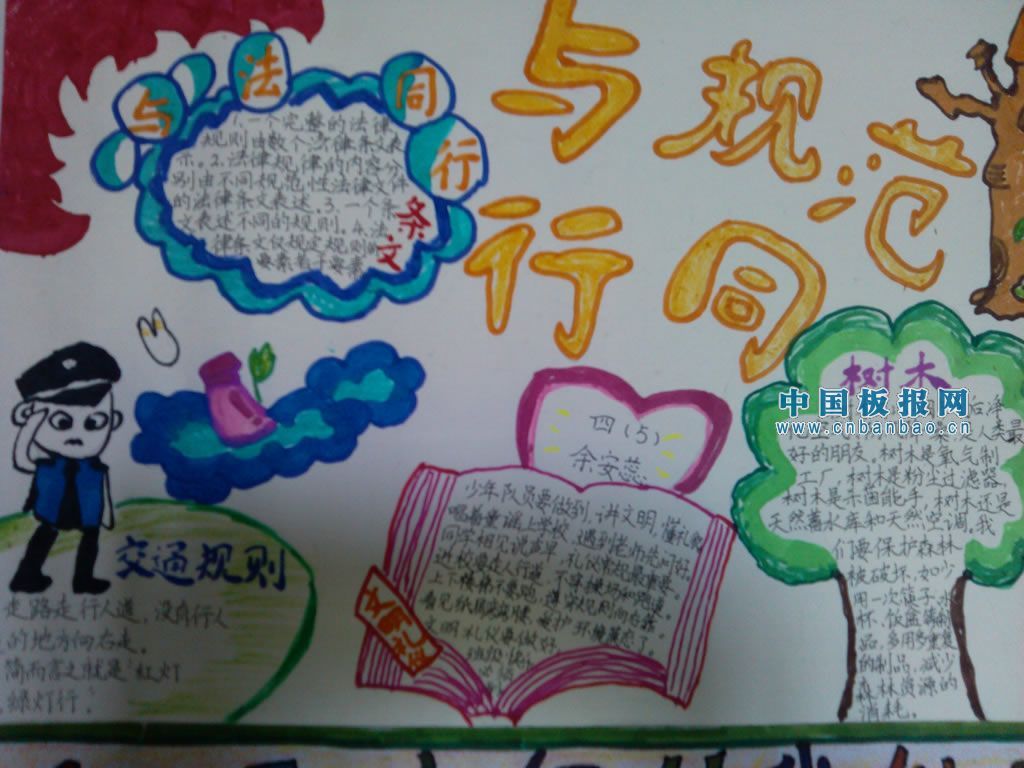 与规范
同行
与法同行
条文
1.一个完整的法律
规则由数个法律条文表
示。2.法律规律的内容分
别由不同规范性法律文件
的法律条文表述。3.一个条
文表述不同的规则。4.法
律条文仅规定规则的
要素若干要素
四(5)
余安蕊
少年队员要做到,讲文明,懂礼貌
唱着童谣上学校,遇到老师先问好。
同学相见说声早,礼仪常规最重要。
进校要走人行道,不穿操场和跑道。
上下楼梯不要跑,遵守规则向右靠。
看见纸屑弯弯腰,爱护环境莫忘了。
文明礼仪要做好,
文明礼仪
交通规则
走路走行人道,没有行人
的地方向右走。
简而言之就是“红灯
绿灯行”
树木
中国板报网
www.cnbanbao.cn
好的朋友,树木是氧气制
工厂,树木是粉尘过滤器,
树木是杀菌能手,树木还是
天然蓄水库和天然空调,我
们要保护森林
被破坏,如少
用一次筷子,水
杯,饭盒等制
品,多用多重复
的制品,减少
森林资源的
消耗。